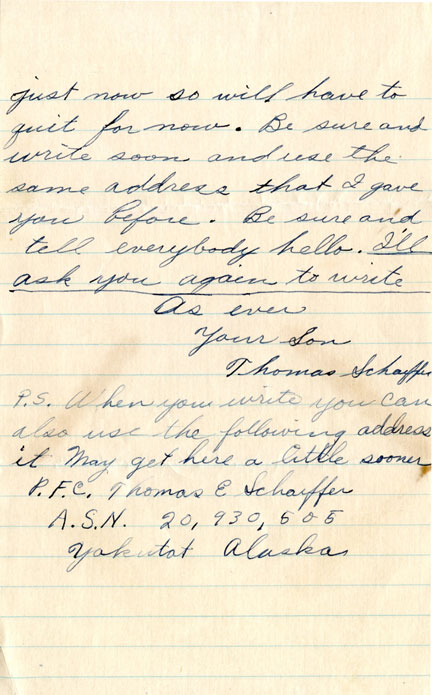 just now so will have to
quit for now. Be sure and
write soon and use the
same address that I gave
you before. Be sure and
tell everybody hello. I'll
ask you again to write
As ever
Your Son
Thomas Schaffer
P.S. When you write you can
also use the following address
it May get here a little sooner
P.F.C. Thomas E Schaffer
A.S.N. 20,930,505
Yakutat Alaska